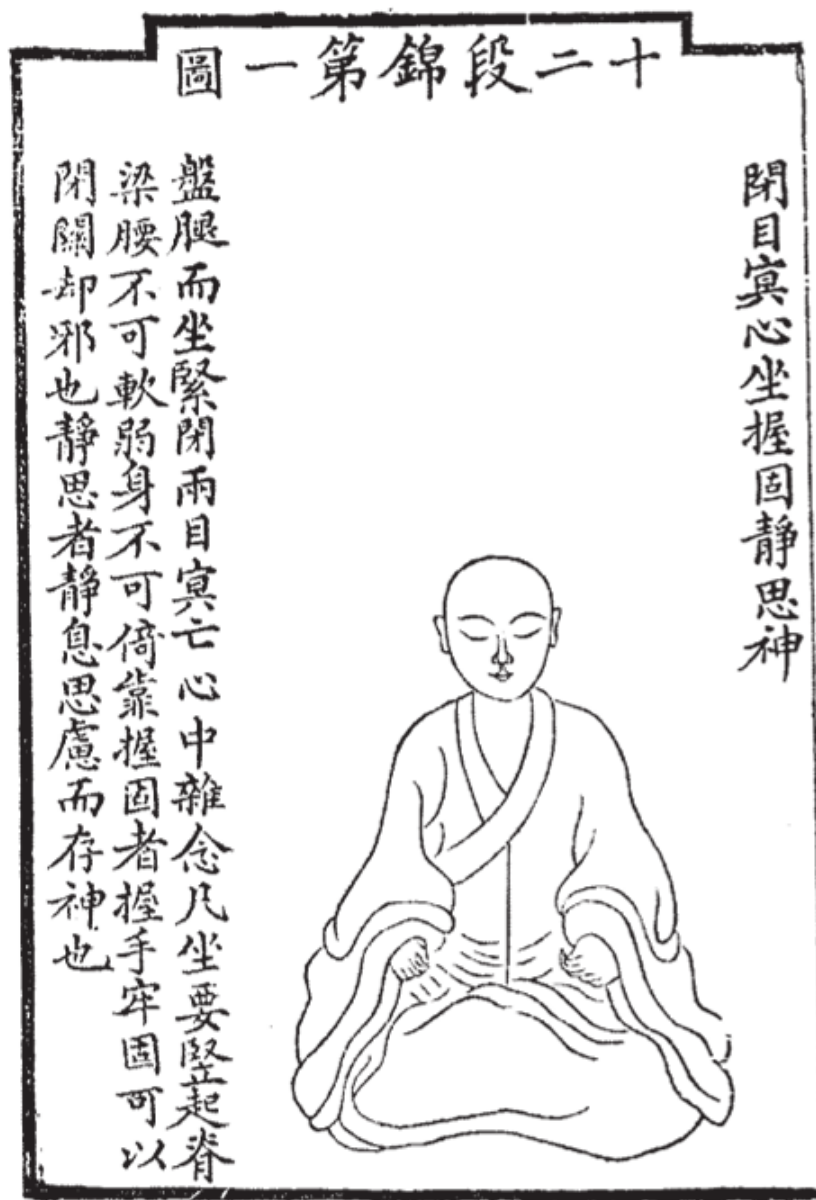 十二段錦第一圖
閉目冥心坐握固靜思神
盤腿而坐緊閉兩目冥亡心中雜念凡坐要竪起脊
梁腰不可軟弱身不可倚靠握固者握手牢固可以
閉關却邪也靜思者靜息思慮而存神也